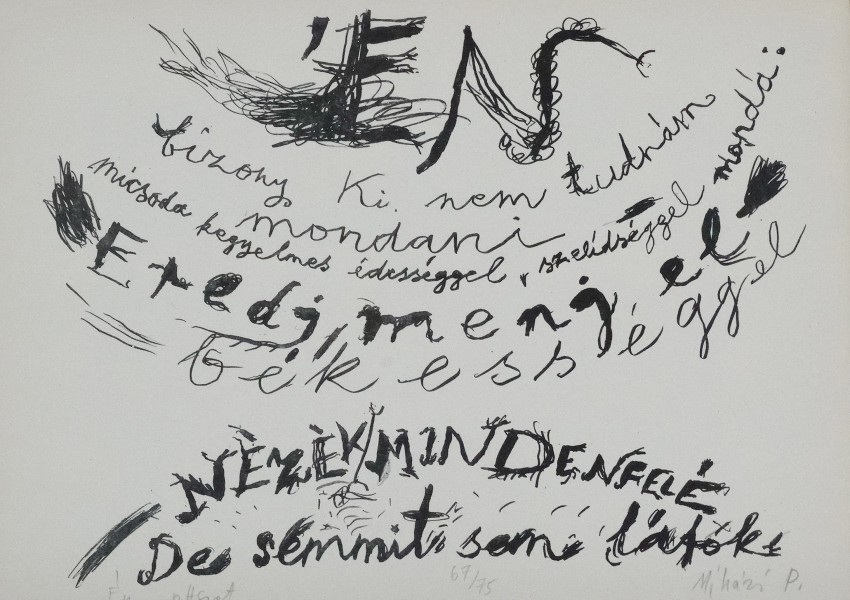 ÉN
bizony Ki nem tudnám
mondani
micsoda kegyelmes édességgel, szelídséggel mondá:
Eredj, menj el
békességgel
NÉZÉK MINDENFELÉ
De semmit sem látók
67/75